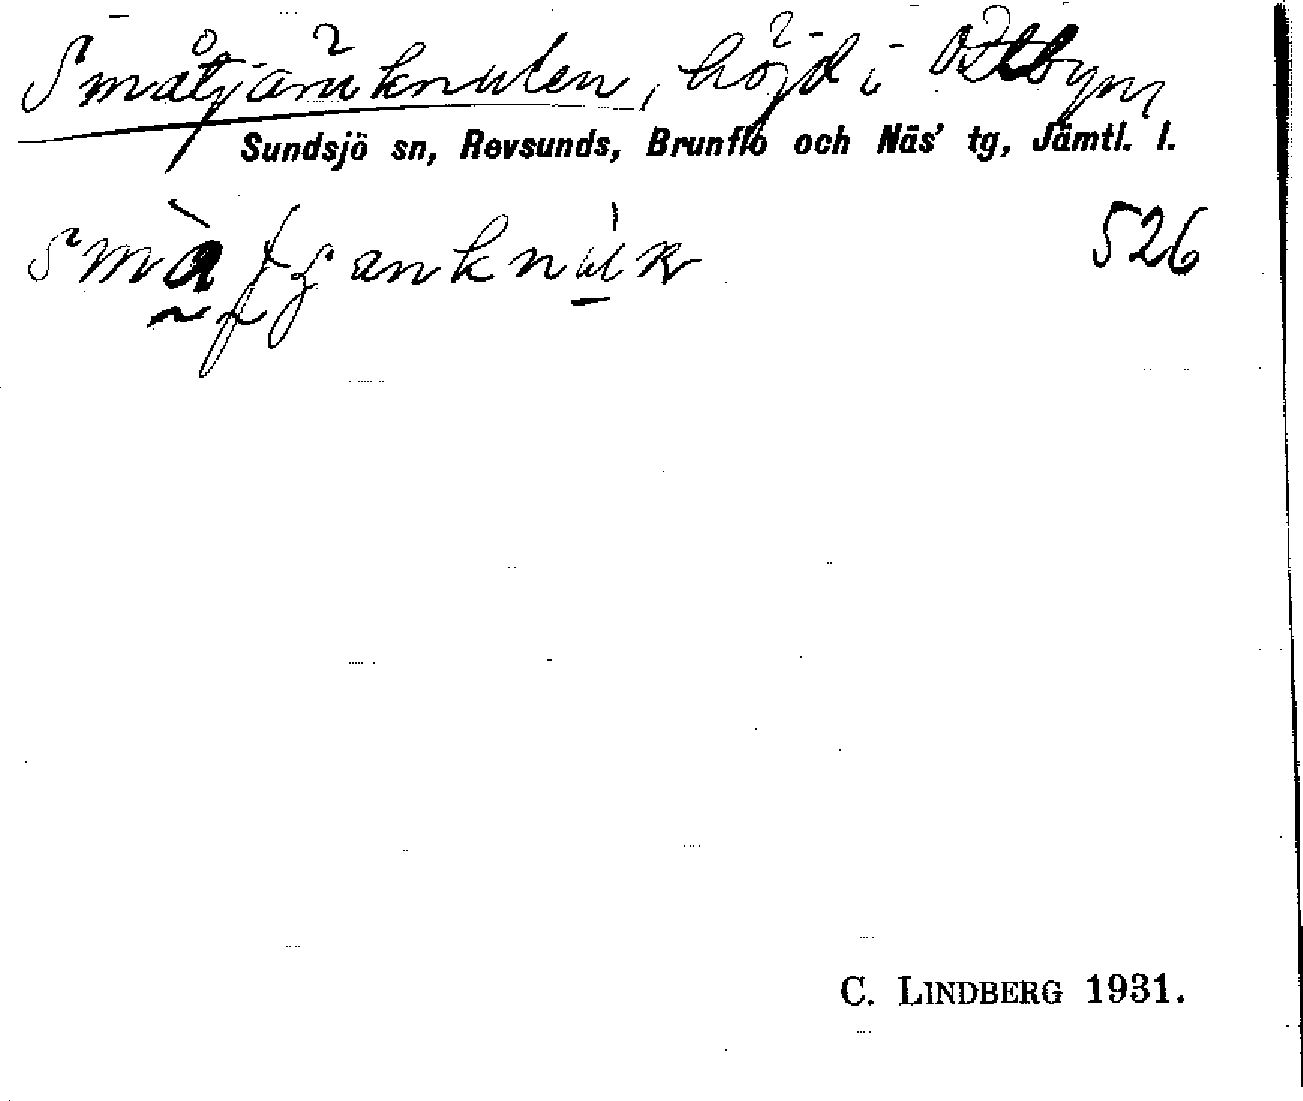 Småtjärnknulen, höjd i
Sundsjö sn, Revsunds, Brunflo och Näs' tg, Jämtl. l.
526
C. LINDBERG 1931.